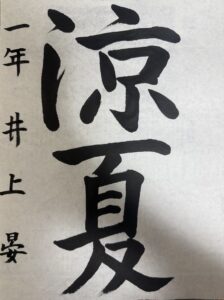 涼夏
一年 井上 晏